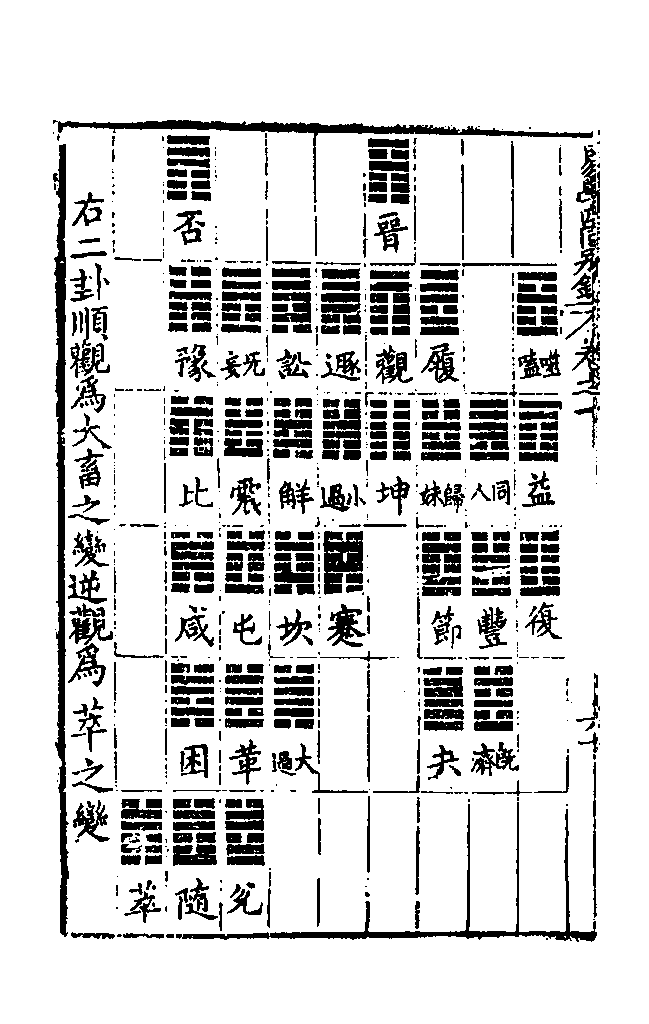 卷之
晉 否
噬嗑 履 觀 遯 訟 无妄 豫
益 同人 歸妹 坤 小過 解 震 比
復 豐 節 蹇 坎 屯 咸
既濟 夬 大過 革 困
兌 隨 萃
右二卦順觀爲大畜之變逆觀爲萃之變